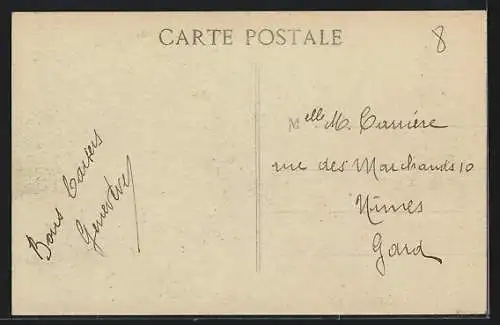 CARTE POSTALE
8
Bons baisers
Genevève
Melle M. Carrière
rue des Marchands 10
Nîmes
Gard